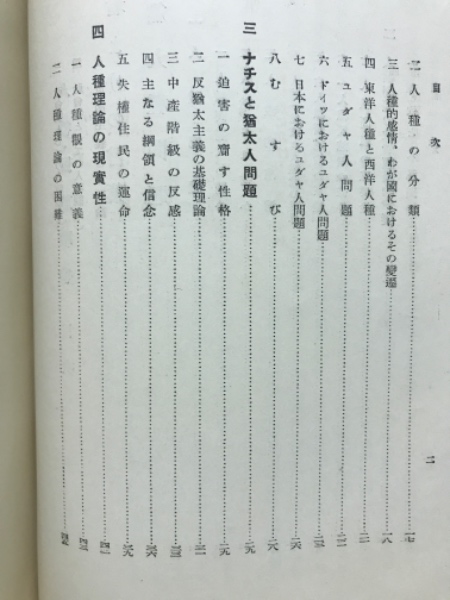 目次
二
二 人種の分類 一七
三 人種的感情、わが國におけるその變遷 一八
四 東洋人種と西洋人種 二一
五 ユダヤ人問題 二二
六 ドイツにおけるユダヤ人問題
七 日本におけるユダヤ人問題 二六
八 むすび 二八
三 ナチスと猶太人問題 二九
一 迫害の齎す性格 二九
二 反猶太主義の基礎理論 三一
三 中産階級の反感 三三
四 主なる綱領と信念 三六
五 失權住民の運命 三九
四 人種理論の現實性 四一
一 人種觀の意義 四三
二 人種理論の困難